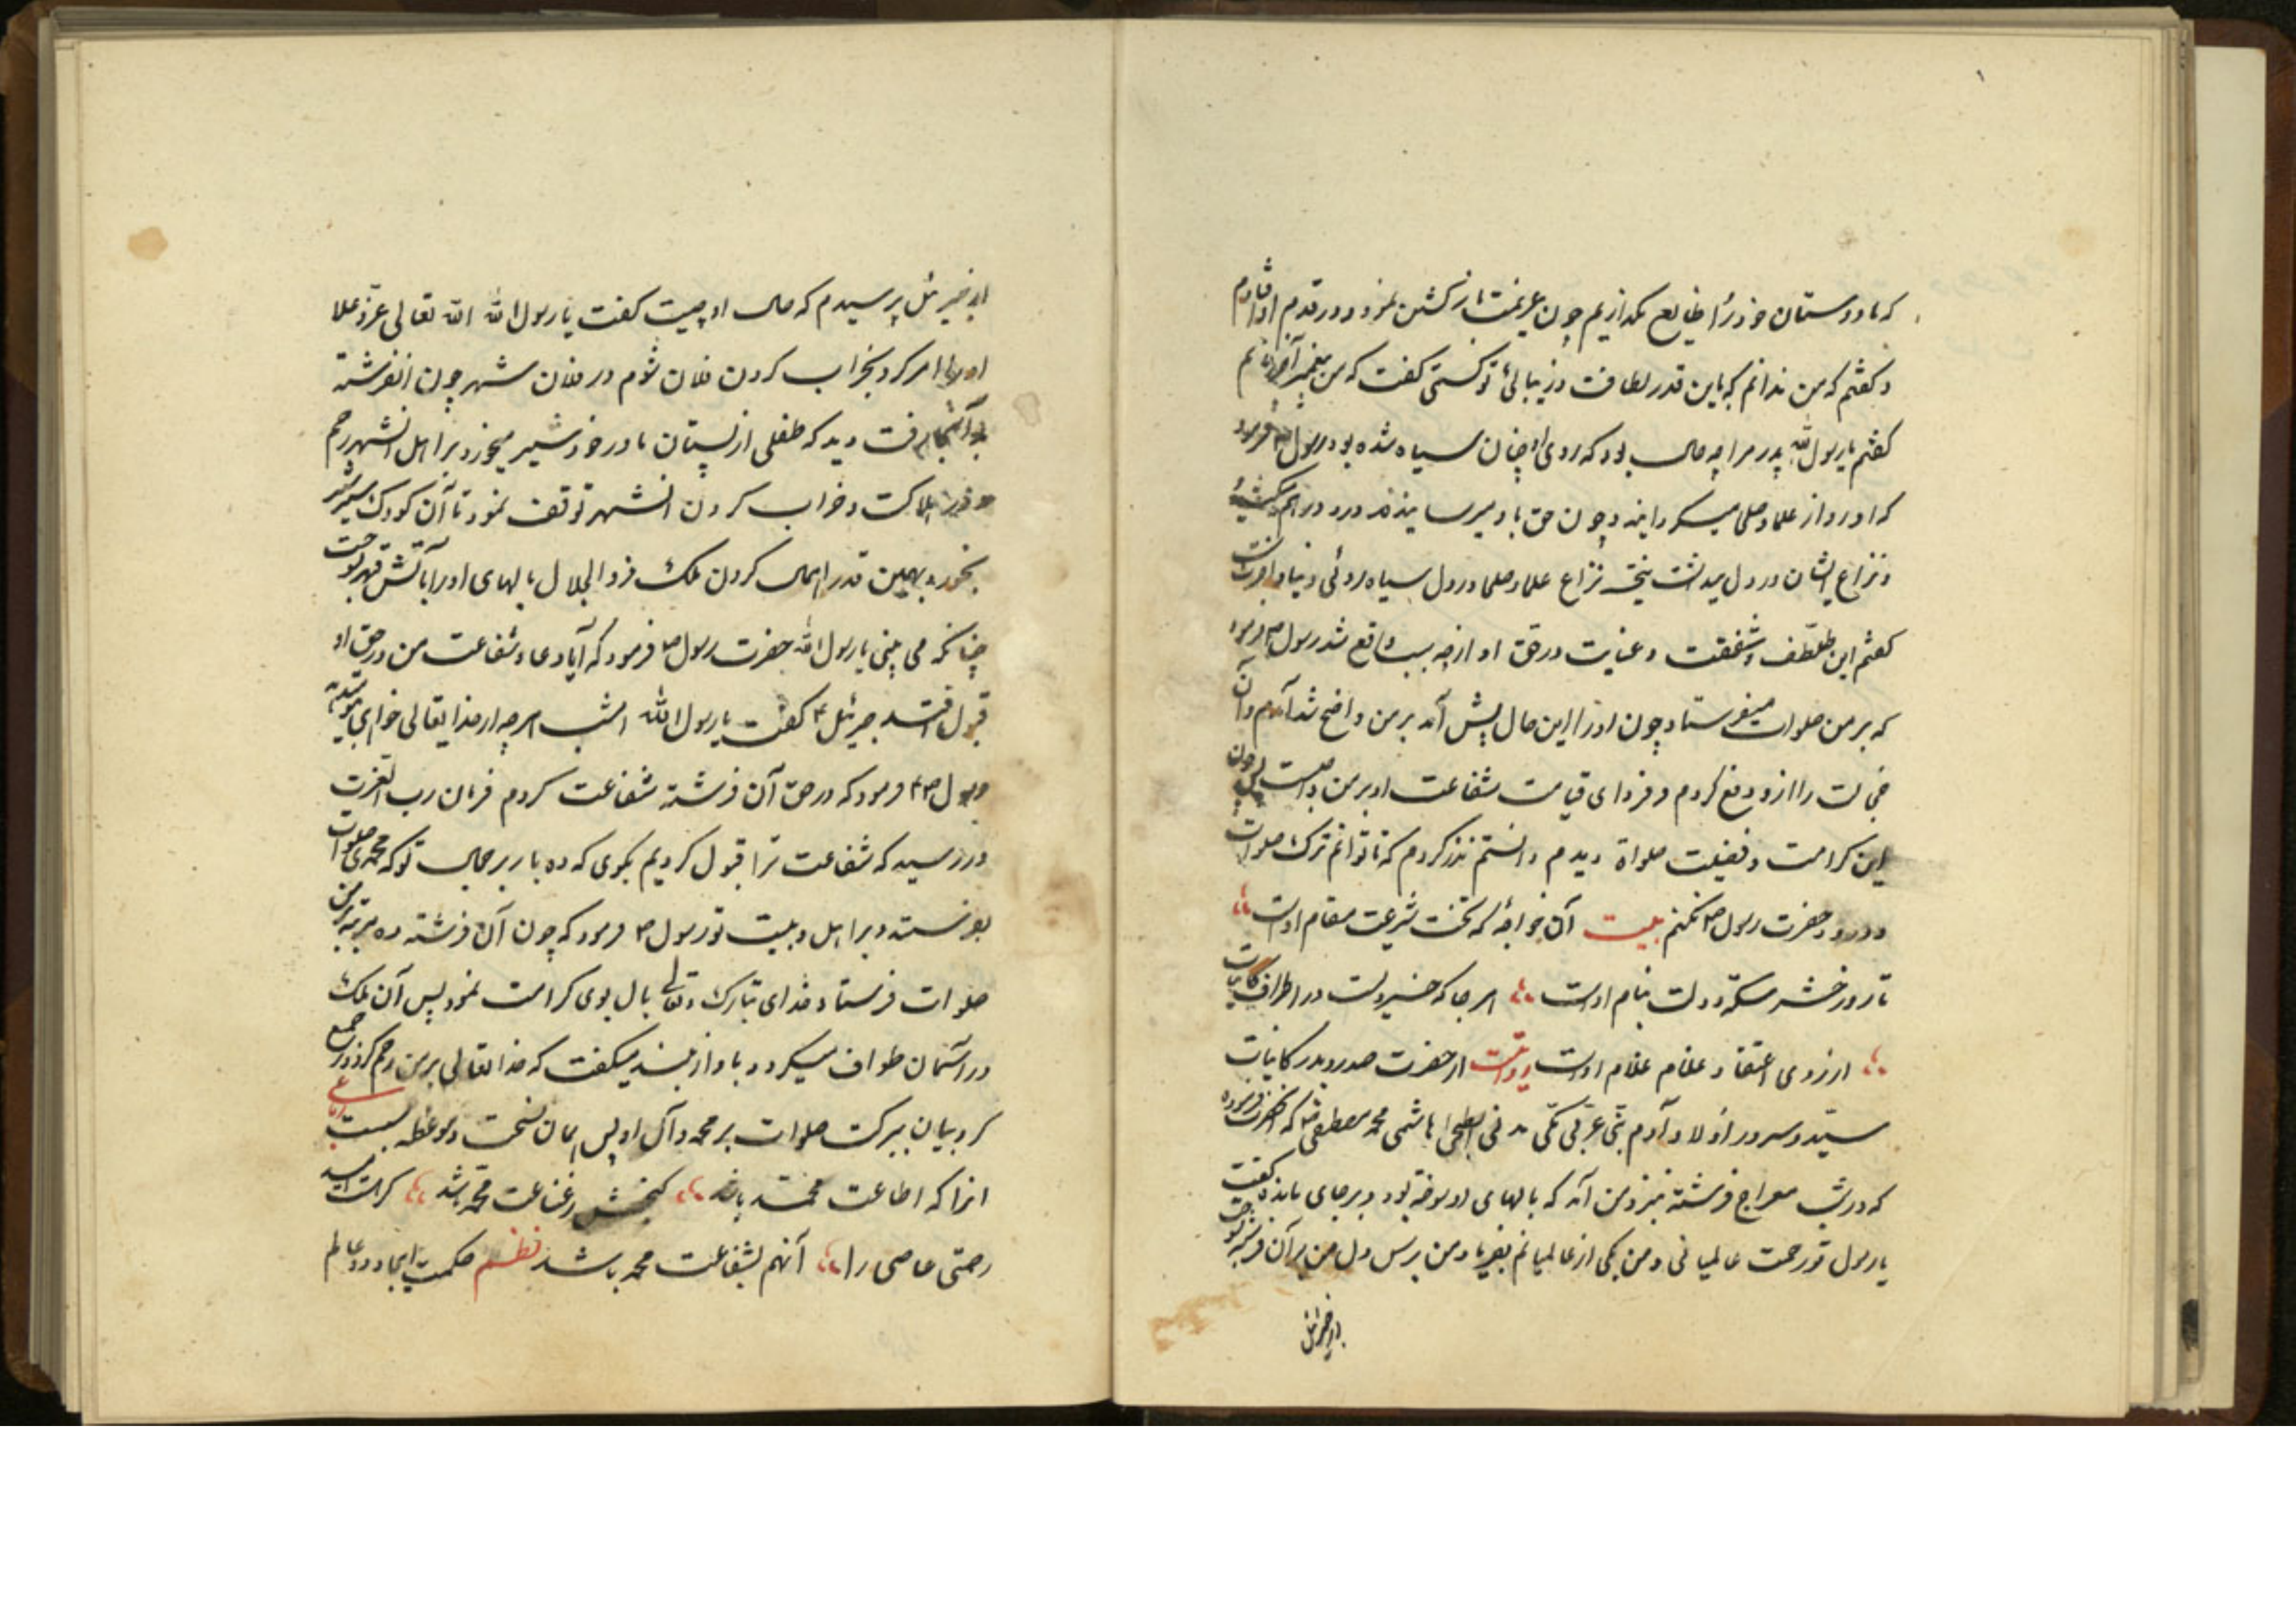 که ما دوستان خود را ضایع نکذاریم چون عزیمت باز کشتن نمود در قدم او افتادم
و کفتم که من ندانم که باین قدر لطافت و زیبائی تو کیستی کفت که من پیغمبر آخر الزمانم
کفتم یا رسول الله پدر مرا چه حال بود که روی او چنان سیاه شده بود رسول فرمود
که او رو از علما و صلحا میکردانید و چون حق باو میرسانیدند درو درهم میکشید
و نزاع ایشان در دل میداشت نتیجه نزاع علما و صلحا در دل سیاه روئی دنیا و آخرت
کفتم این تلطف و شفقت و عنایت در حق او از چه سبب واقع شد رسول ص فرمود
که بر من صلوات میفرستاد چون او را این حال پیش آمد بر من واضح شد آمدم و آن
خجالت را ازو دفع کردم و فردای قیامت شفاعت او بر من واجبست پس چون
این کرامت و فضیلت صلواة دیدم دانستم نذر کردم که تا توانم ترک صلوات
و درود حضرت رسول ص نکنم بیت آن خواجه که تخت شریعت مقام اوست
تا روز حشر سکه دولت بنام اوست هر جا که خسرویست در اطراف کاینات
از روی اعتقاد غلام غلام اوست روایتست از حضرت صدر و بدر کاینات
سید و سرور اولاد آدم نبی عربی مکی مدنی ابطحی هاشمی محمد مصطفی که حضرت فرموده
که در شب معراج فرشته نزد من آمد که بالهای او سوخته بود و بر جای مانده کفت
یا رسول تو رحمت عالمیانی و من یکی از عالمیانم بفریاد من برس دل من بر آن فرشته بسوخت
از جبرئیل
از جبرئیل پرسیدم که حال او چیست کفت یا رسول الله الله تعالی عز و علا
او را امر کرد بخراب کردن فلان قوم در فلان شهر چون انفرشته
بدآنجا رفت دید که طفلی از پستان مادر خود شیر میخورد بر اهل انشهر رحم
در هلاکت و خراب کردن انشهر توقف نمود تا آن کودک سیر شیر
بخورد بهمین قدر اهمال کردن ملک ذوالجلال بالهای او را بآتش قهر بسوخت
چنانکه می بینی یا رسول الله حضرت رسول ص فرمود که آیا دعا و شفاعت من در حق او
قبول افتد جبرئیل ع کفت یا رسول الله امشب هر چه از خدایتعالی خواهی
رسول ص فرمود که در حق آن فرشته شفاعت کردم فرمان رب العزت
در رسید که شفاعت ترا قبول کردیم بکوی که ده بار بر جمال تو که محمدی صلوات
بفرستد و بر اهل و بیت تو رسول ص فرمود که چون آن فرشته ده مرتبه بر من
صلوات فرستاد خدای تبارک و تعالی بال بوی کرامت نمود پس آن ملک
در آسمان طواف میکرد و باواز بلند میکفت که خدایتعالی بر من رحم کرد و جمیع
کروبیان ببرکت صلوات بر محمد و آل او پس ایمان نسخت و موعظه بیت
انرا که اطاعت محمد باشد کنجش ز قناعت محمد باشد کر هست امید
رحمتی عاصی را آنهم بشفاعت محمد باشد نظم حکمت ایجاد دو عالم